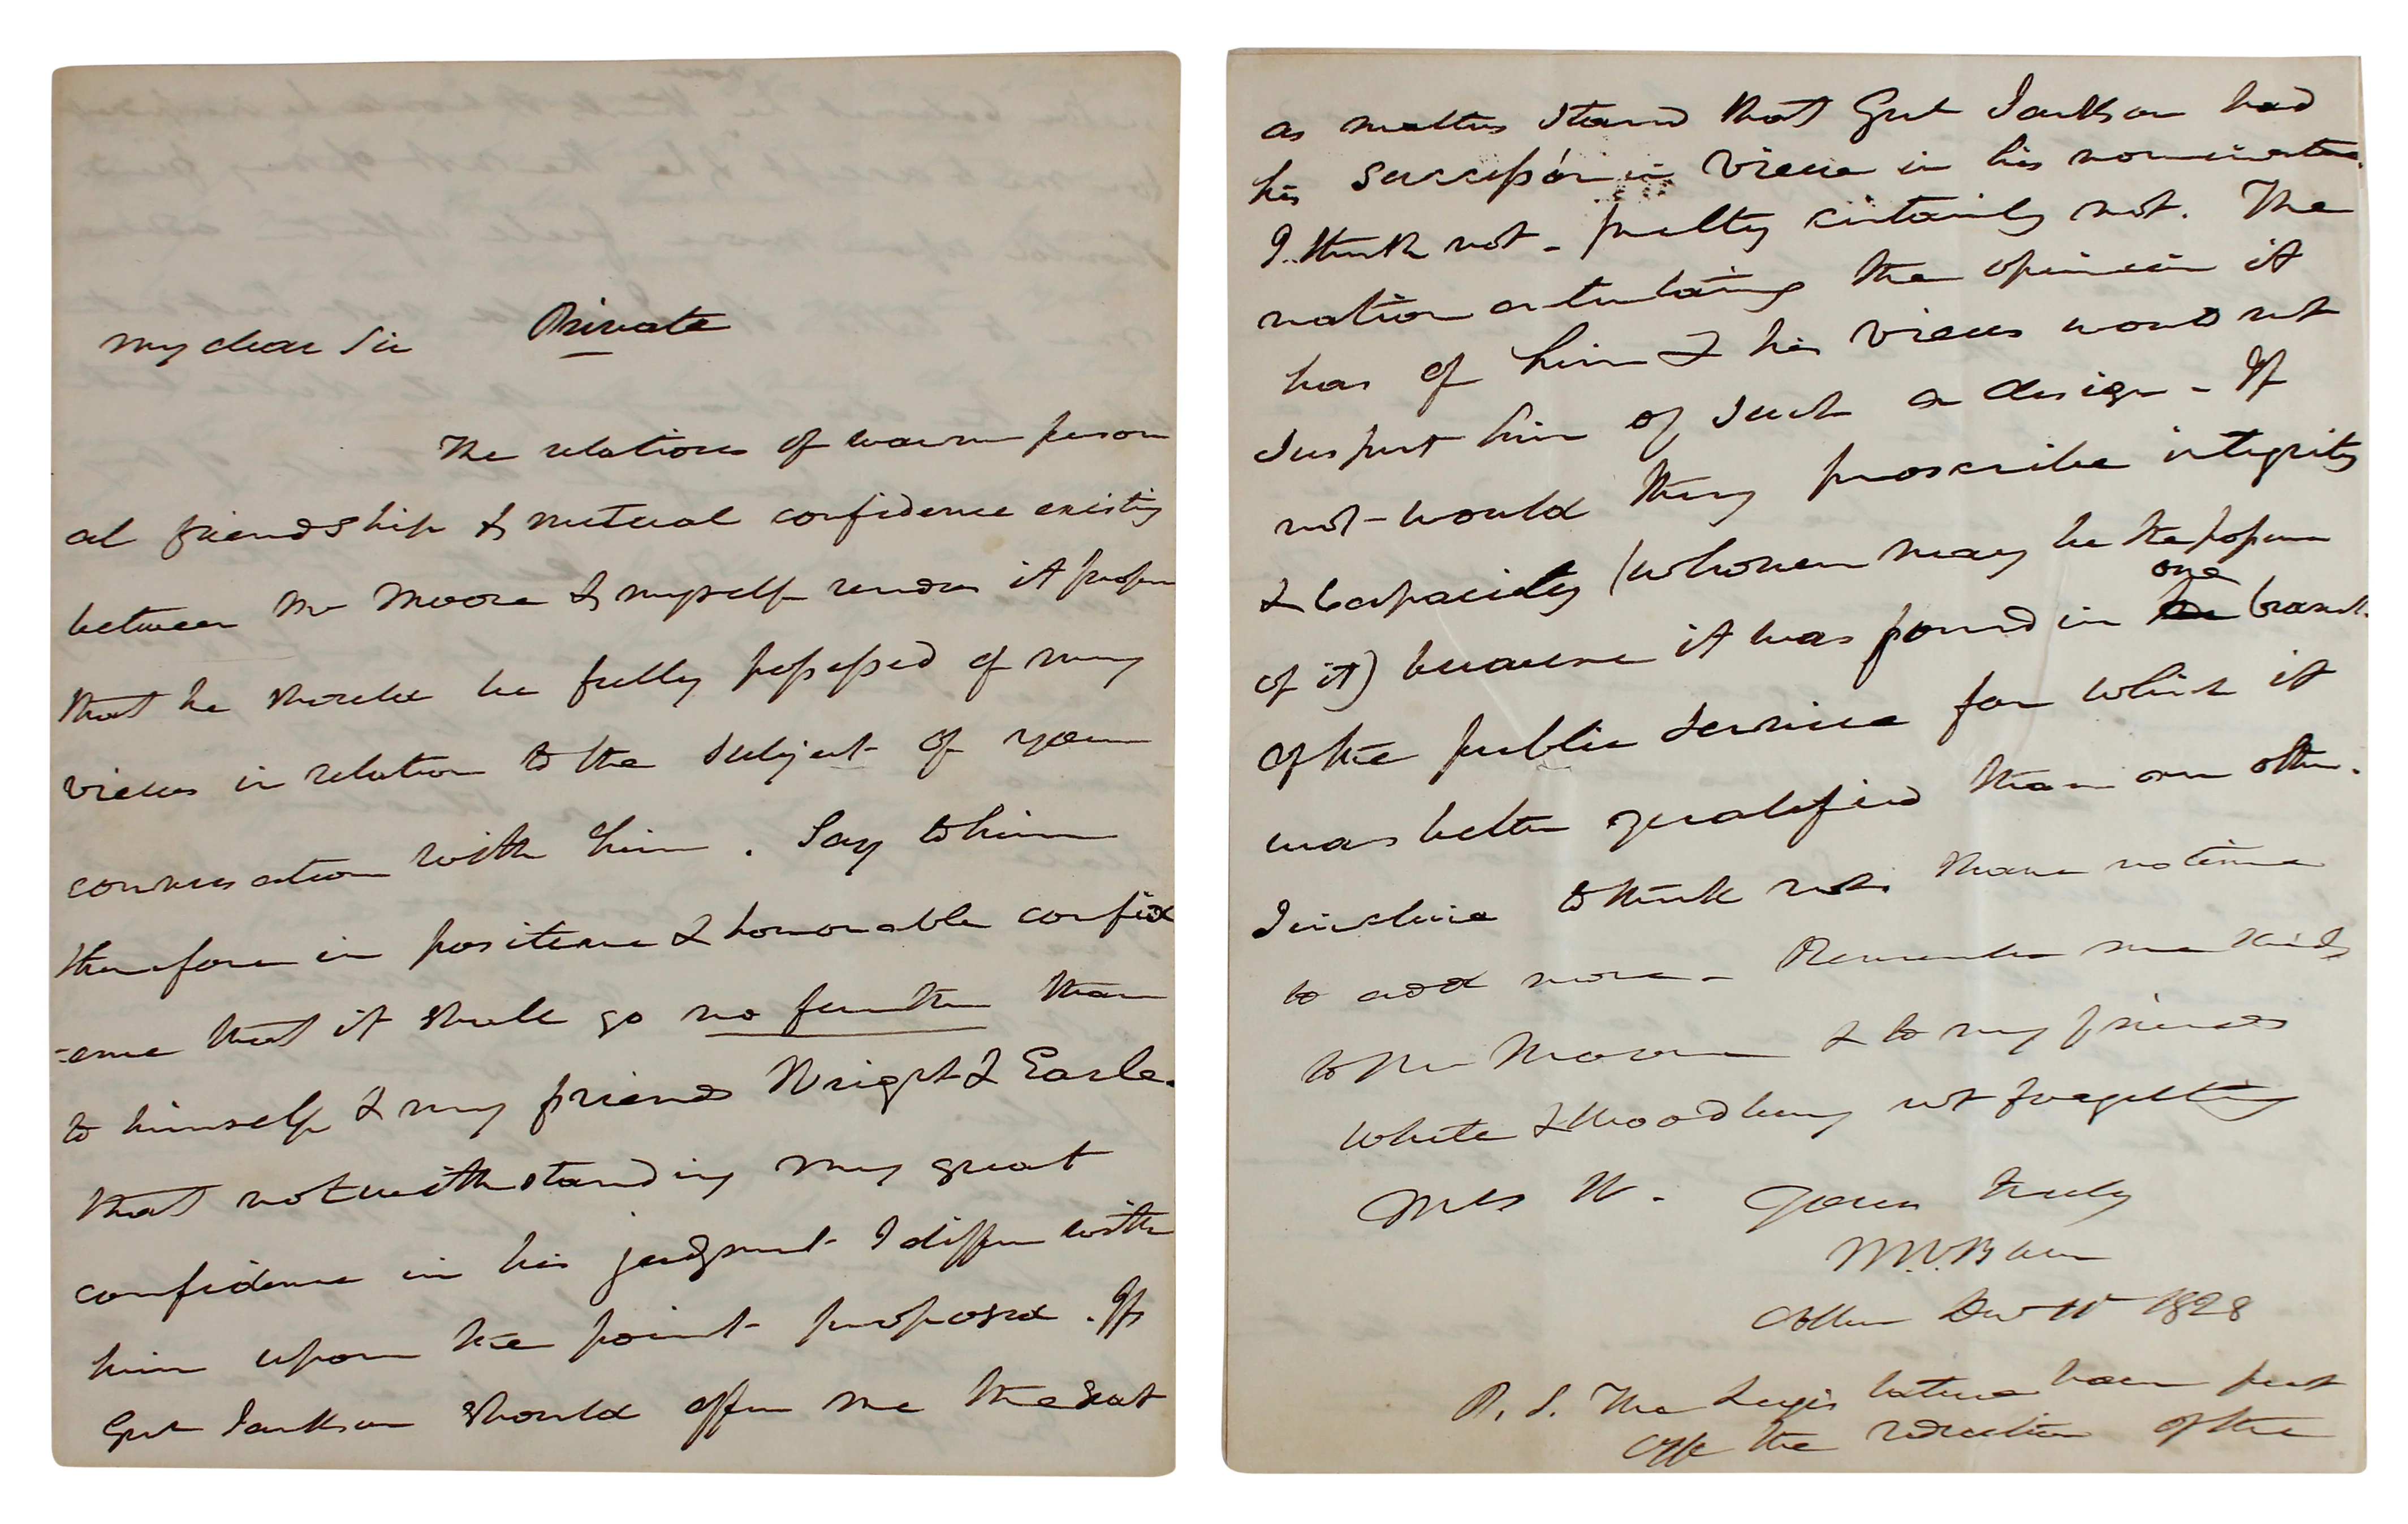 Private
My dear Sir
The relations of warm person
al friendship & mutual confidence existing
between Mr Moore & myself renders it proper
that he should be fully possessed of my
views in relation to the subject of your
conversation with him. Say to him
therefore in positive & honorable confid
-ence that it shall go no further than
to himself & my friends Wright & Earle.
that notwithstanding my great
confidence in his judgment I differ with
him upon the point proposed. If
Genl Jackson should offer me the seat
as matters stand that Genl Jackson had
his successor in view in his nomination.
I think not - pretty certainly not. The
nation entertaining the opinion it
has of him & his views would not
suspect him of such a design - If
not - would they proscribe integrity
& capacity (whosever may be the
of it) because it was found in one branch
of the public service for which it
was better qualified than an other.
I incline to think not. I have no time
to add more - Remember me kindly
to Mr Moore & to my friends
White & Woodbury not forgetting
Mrs W. Yours truly
M.V.Buren
1828
P.S. The Legislature have put
off the election of the